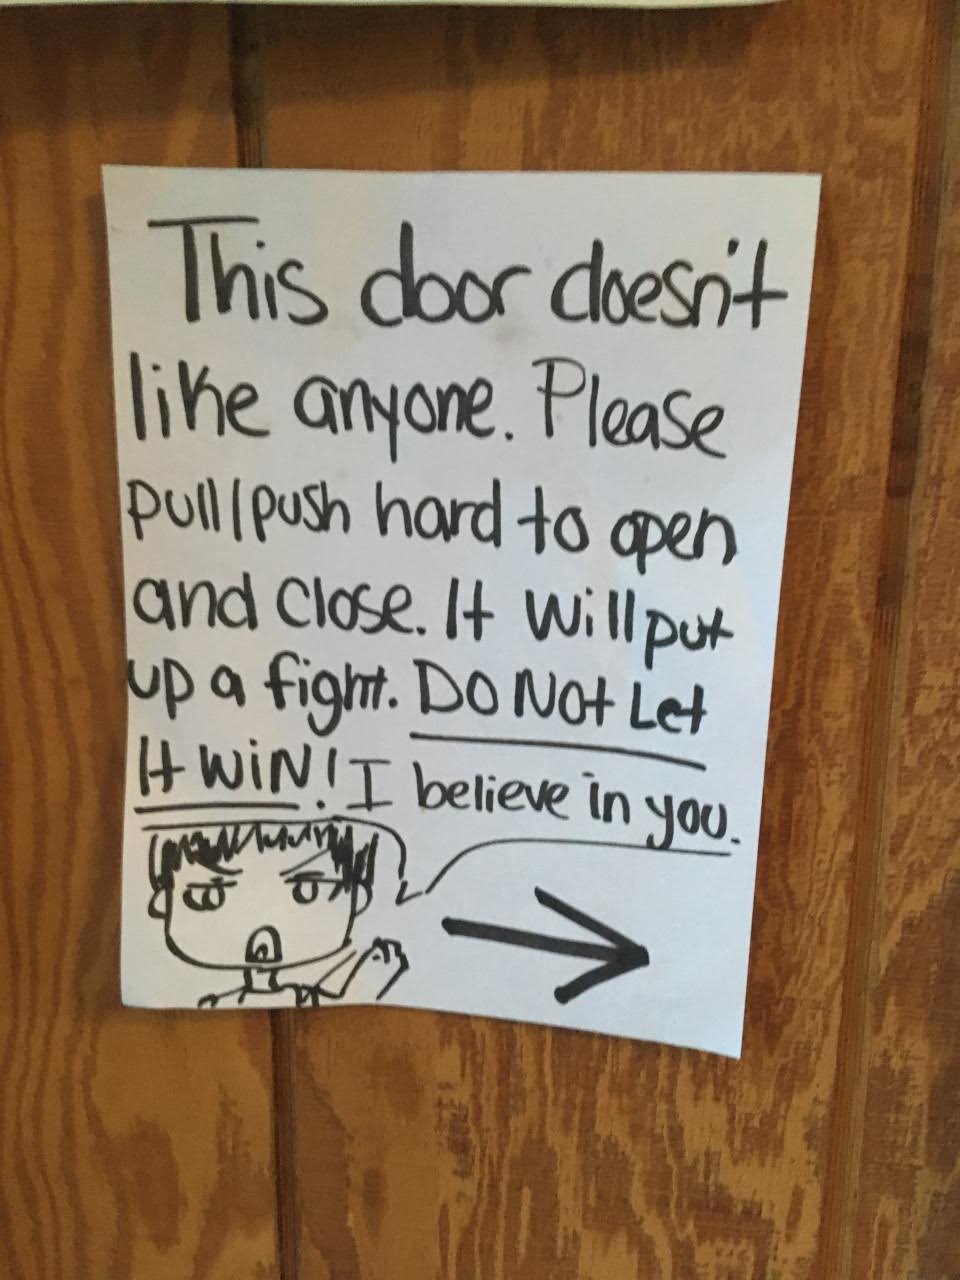 This door doesn't
like anyone. Please
pull/push hard to open
and close. It will put
up a fight. DO NOt Let
It WiN! I believe in you.